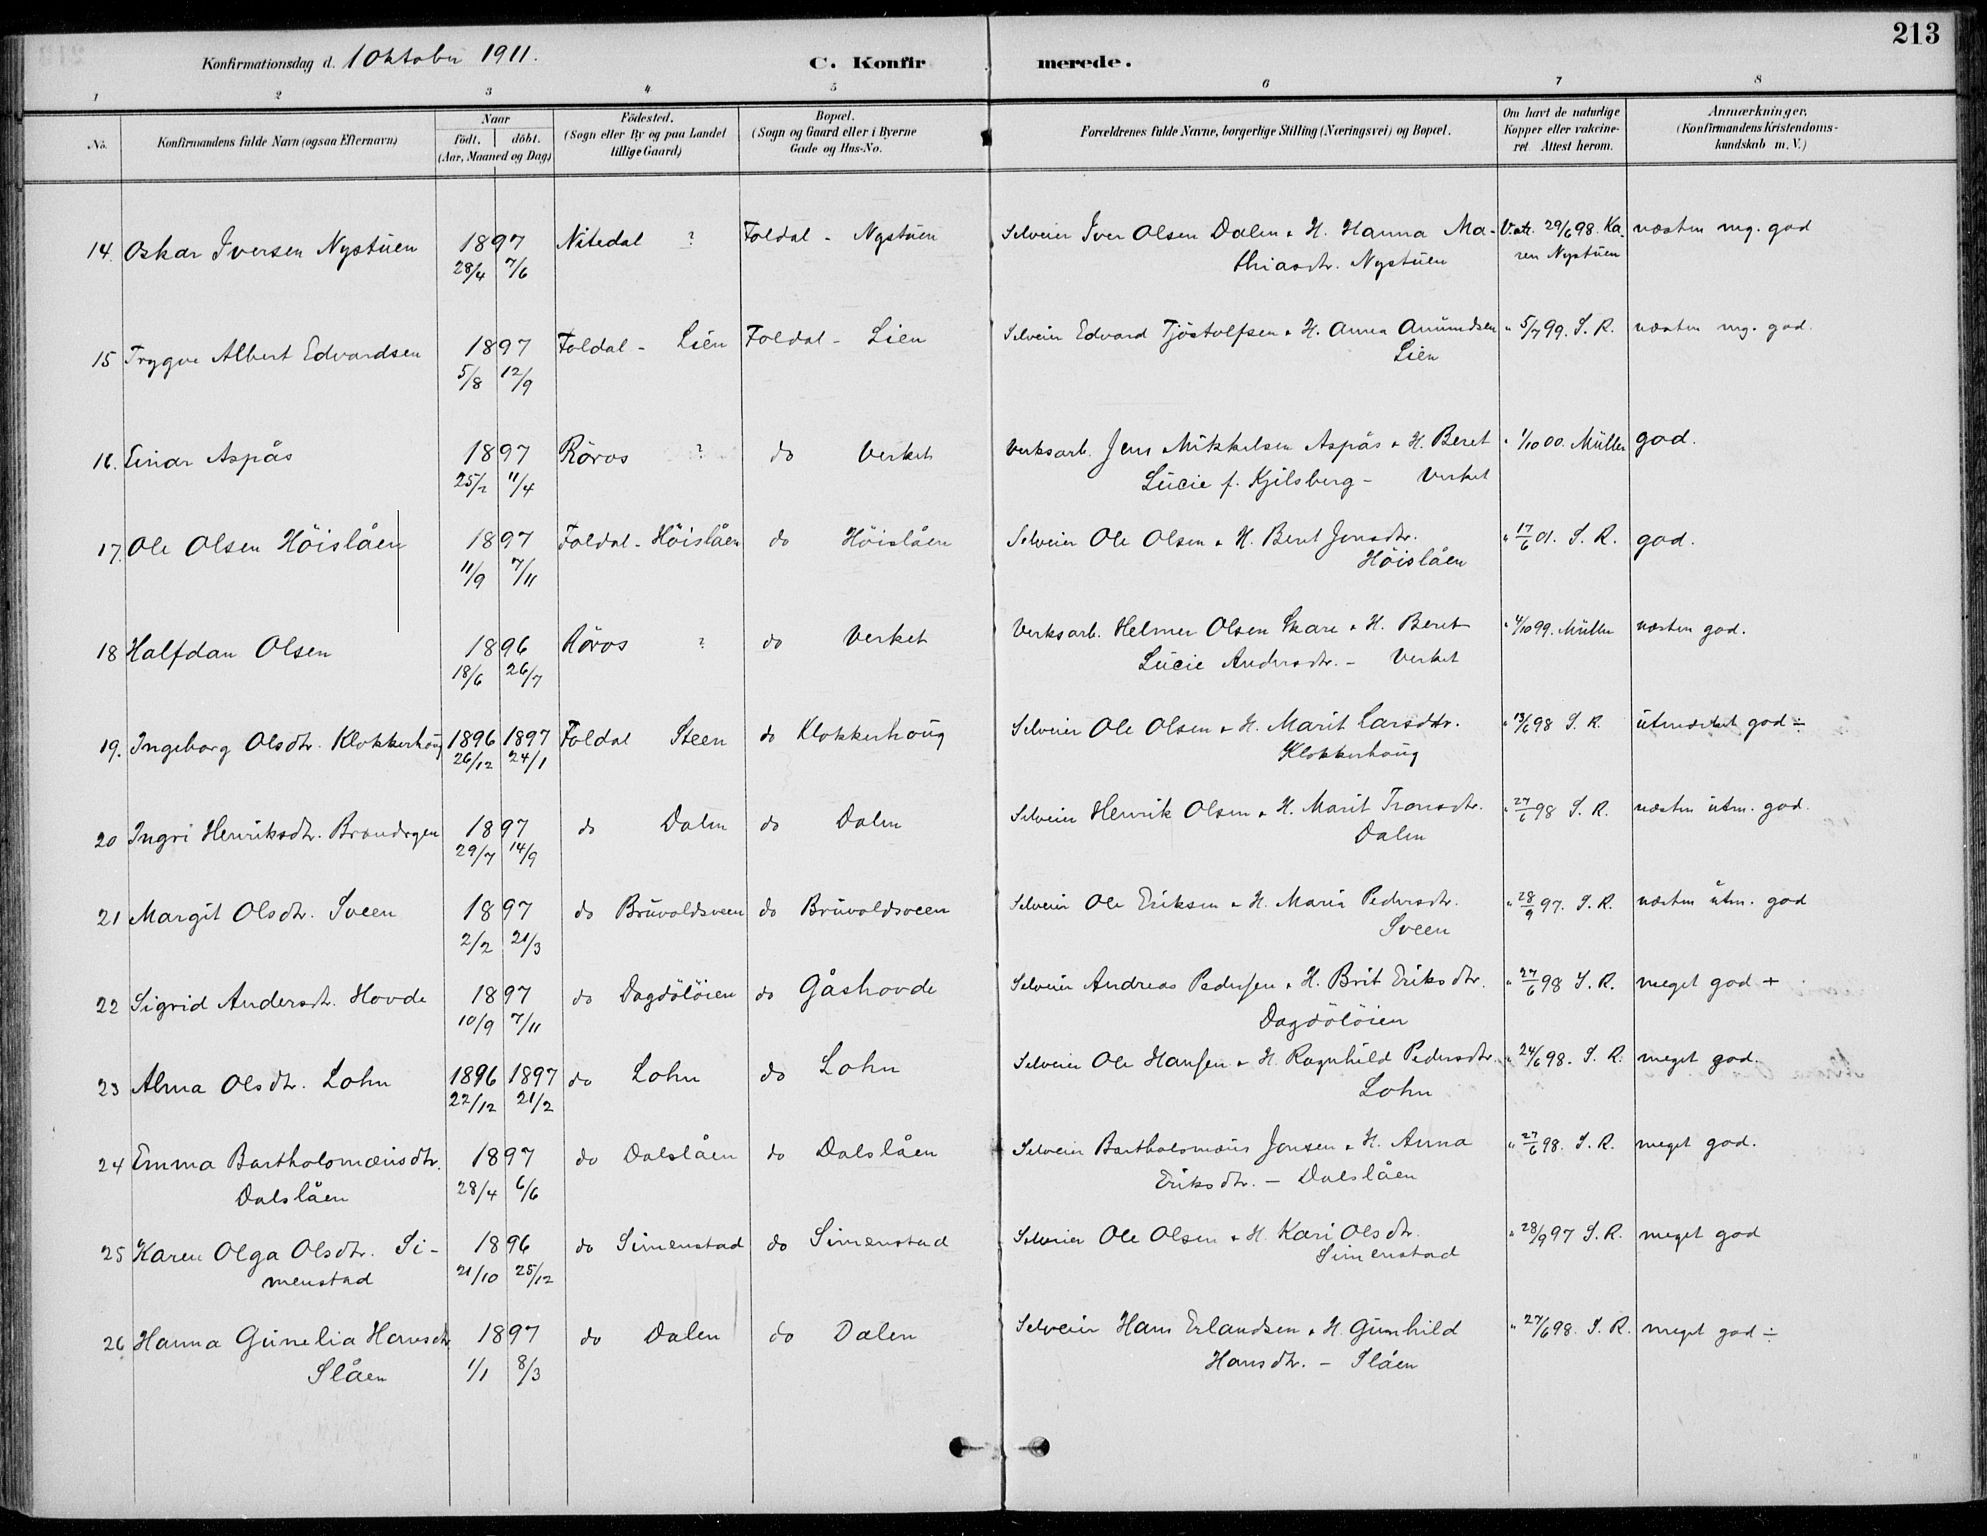 213
Konfirmationsdag d. 1 Oktober 1911.
C. Konfirmerede.
1 2 3 4 5 6 7 8
No.
Konfirmandens fulde Navn (ogsaa Efternavn)
Naar
födt. döbt.
(Aar, Maaned og Dag)
Födested.
(Sogn eller By og paa Landet
tillige Gaard)
Bopæl.
(Sogn og Gaard eller i Byerne
Gade og Hus-No.
Forældrenes fulde Navne, borgerlige Stilling (Næringsvei) og Bopæl.
Om havt de naturlige
Kopper eller vakcine-
ret. Attest herom.
Anmærkninger,
(Konfirmandens Kristendoms-
kundskab m. V.)
14. Oskar Iversen Nystuen 1897 Nitedal ? Foldal - Nystuen Selveier Iver Olsen Dalen & H. Hanna Ma- Vatt. 29/6 98. Ka- næsten mg. god
28/4 7/6 thiasdtr. Nystuen ren Nystuen
15 Trygve Albert Edvardsen 1897 Foldal - Lien Foldal - Lien Selveier Edvard Tjöstolfsen & H. Anna Amundsen " 5/7 99. S. R. næsten mg. god.
5/8 12/9 Lien
16. Einar Aspås 1897 Röros ? do Verket Verksarb. Jens Mikkelsen Aspås & H. Beret " 1/10 00. Müller god.
25/2 11/4 Lucie f. Kjelsberg - Verket
17. Ole Olsen Höislåen 1897 Foldal - Höislåen do Höislåen Selveier Ole Olsen & H. Beret Jonsdtr. " 17/6 01. S. R. god.
11/9 7/11 Höislåen
18 Halfdan Olsen 1896 Röros ? do Verket Verksarb. Helmer Olsen Skare & H. Beret " 4/10 99. Müller næsten god.
18/6 26/7 Lucie Andersdtr. - Verket
19. Ingeborg Olsdtr. Klokkerhoug 1896 1897 Foldal Steen do Klokkerhoug Selveier Ole Olsen & H. Marit Larsdtr. " 13/6 98 S. R. utmærket god ÷
26/12 24/1 Klokkerhoug
20 Ingri Henriksdtr. Brandrgen 1897 do Dalen do Dalen Selveier Henrik Olsen & H. Marit Tronsdtr. " 27/6 98 S. R. næsten utm. god.
29/7 14/9 Dalen
21 Margit Olsdtr. Sveen 1897 do Bruvoldsveen do Bruvoldsveen Selveier Ole Eriksen & H. Maria Pedersdtr. " 28/9 97. S. R. næsten utm. god
2/2 21/3 Sveen
22 Sigrid Andersdt. Hovde 1897 do Dagdölöien do Gåshovde Selveier Andreas Pedersen & H. Brit Eriksdtr. " 27/6 98 S. R. meget god +
10/9 7/11 Dagdölöien
23 Alma Olsdtr. Lohn 1896 1897 do Lohn do Lohn Selveier Ole Hansen & H. Ragnhild Pedersdtr. " 24/6 98. S. R. meget god.
22/12 21/2 Lohn
24 Emma Bartholomæusdtr. 1897 do Dalslåen do Dalslåen Selveier Bartholomæus Jonsen & H. Anna " 27/6 98. S. R. meget god.
Dalslåen 28/4 6/6 Eriksdtr. - Dalslåen
25 Karen Olga Olsdtr. Si- 1896 do Simenstad do Simenstad Selveier Ole Olsen & H. Kari Olsdtr. " 28/9 97 S. R. meget god
menstad 21/10 25/12 Simenstad
26 Hanna Gunelia Hansdtr 1897 do Dalen do Dalen Selveier Hans Erlandsen & H. Gunhild " 27/6 98. S. R. meget god ÷
Slåen 1/1 8/3 Hansdtr. - Slåen